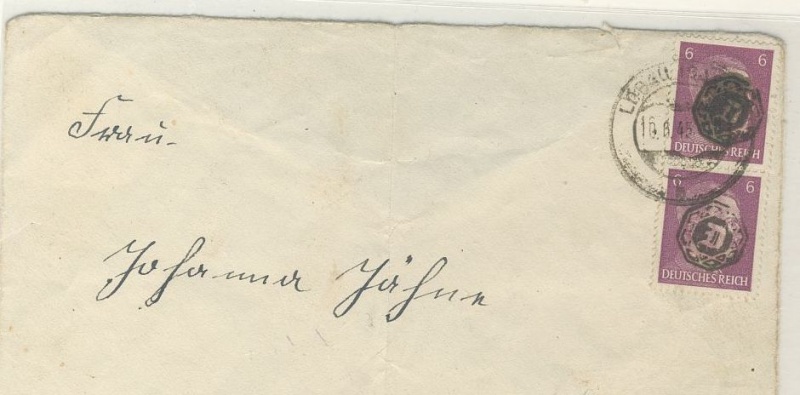 Frau.
Johanna Jähne
LÖBAU
16.6.45
6 6
DEUTSCHES REICH
6 6
DEUTSCHES REICH